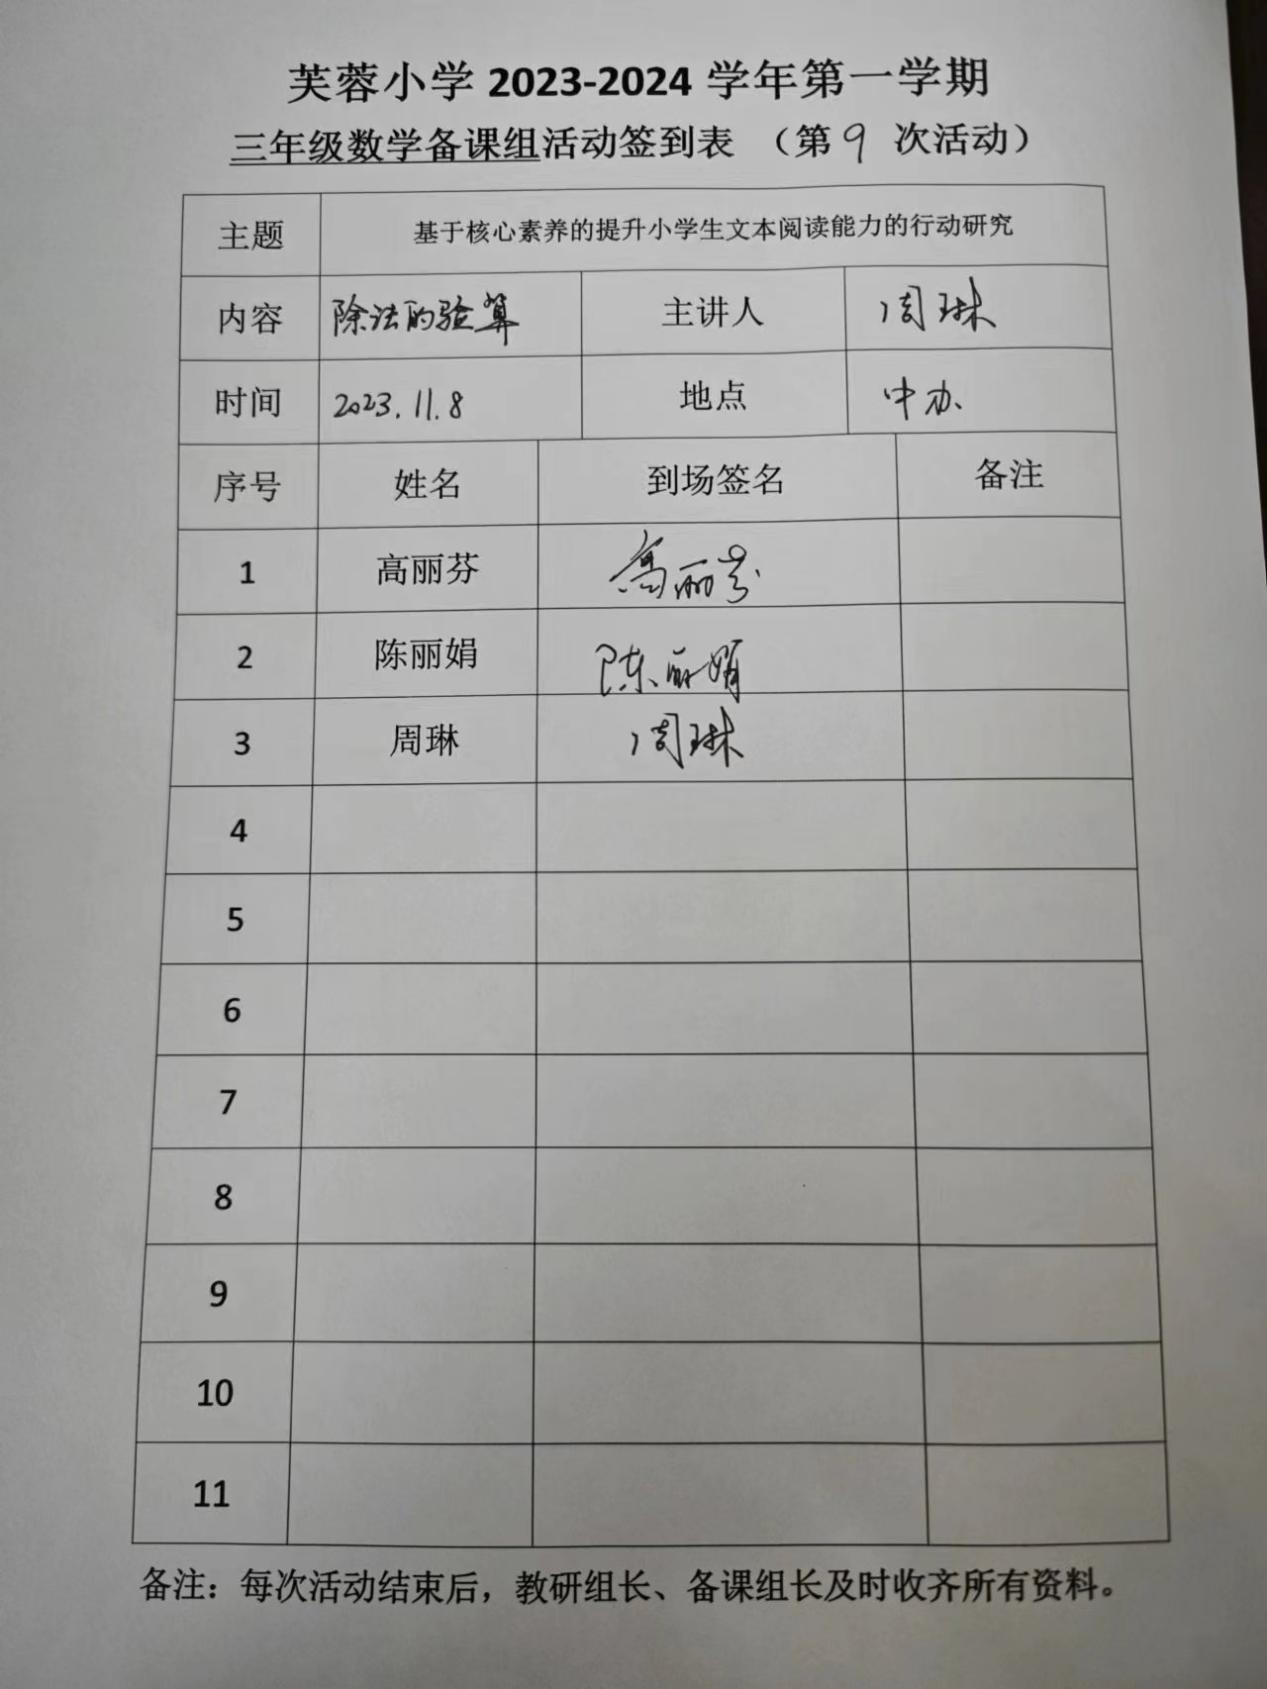 芙蓉小学 2023-2024 学年第一学期
三年级数学备课组活动签到表 （第 9 次活动）
主题 基于核心素养的提升小学生文本阅读能力的行动研究
内容 除法的验算 主讲人 周琳
时间 2023.11.8 地点 中办
序号 姓名 到场签名 备注
1 高丽芬 高丽芬
2 陈丽娟 陈丽娟
3 周琳 周琳
4
5
6
7
8
9
10
11
备注：每次活动结束后，教研组长、备课组长及时收齐所有资料。